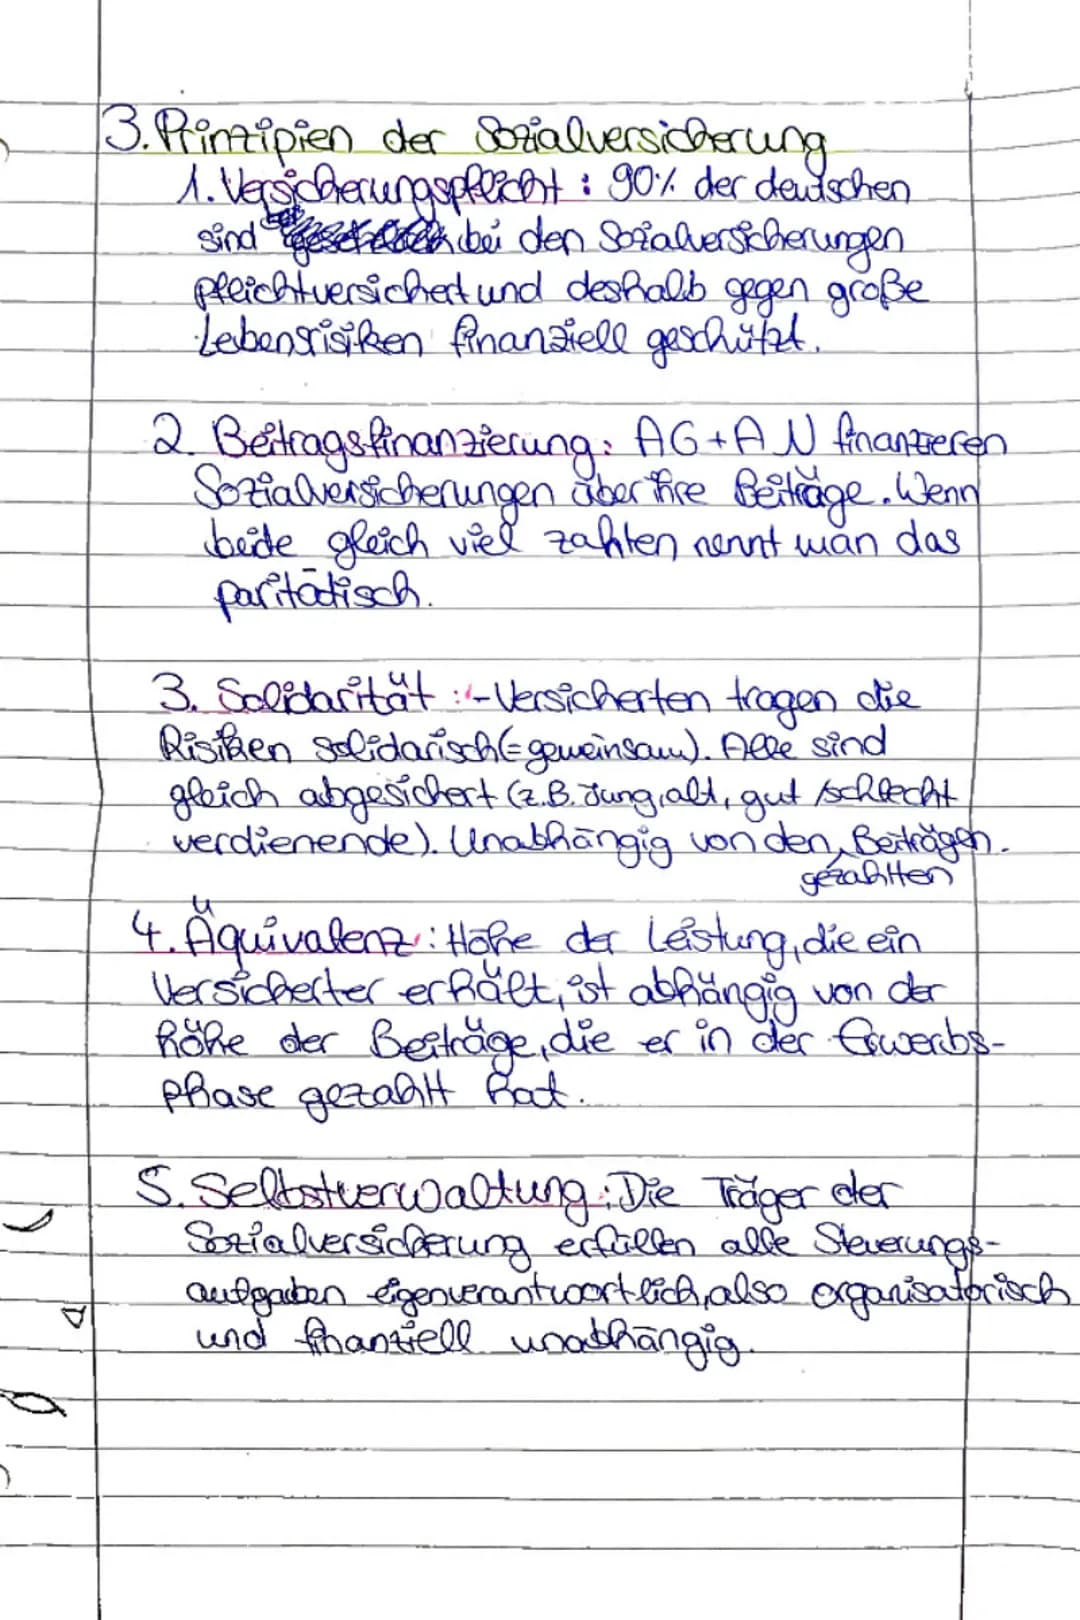 3. Prinzipien der Sozialversicherung
1. Versicherungspflicht : 90% der deutschen
sind bei den Sozialversicherungen
pflichtversichert und deshalb gegen große
Lebensrisiken finanziell geschützt.
2. Beitragsfinanzierung: AG+AN finanzieren
Sozialversicherungen über ihre Beiträge. Wenn
beide gleich viel zahlen nennt man das
paritätisch.
3. Solidarität :-Versicherten tragen die
Risiken solidarisch(=gemeinsam). Alle sind
gleich abgesichert (z.B. Jung, alt, gut /schlecht
verdienende). Unabhängig von den Beiträgen.
gezahlten
4. Äquivalenz: Höhe der Leistung, die ein
Versicherter erhält, ist abhängig von der
höhe der Beiträge, die er in der Erwerbs-
phase gezahlt hat.
5. Selbstverwaltung: Die Träger der
Sozialversicherung erfüllen alle Steuerungs-
aufgaben eigenverantwortlich, also organisatorisch
und finanziell unabhängig.